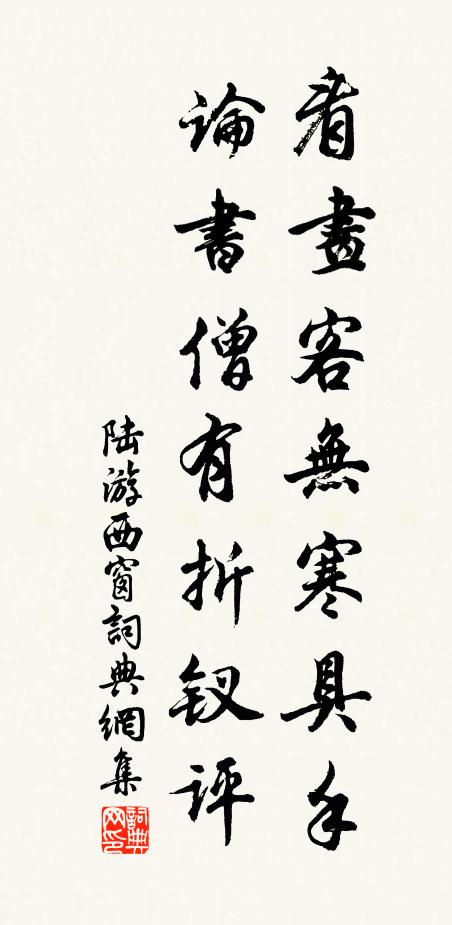 看畫客無寒具手
論書僧有折釵評
陸游西窗詞典網集
詞典网印